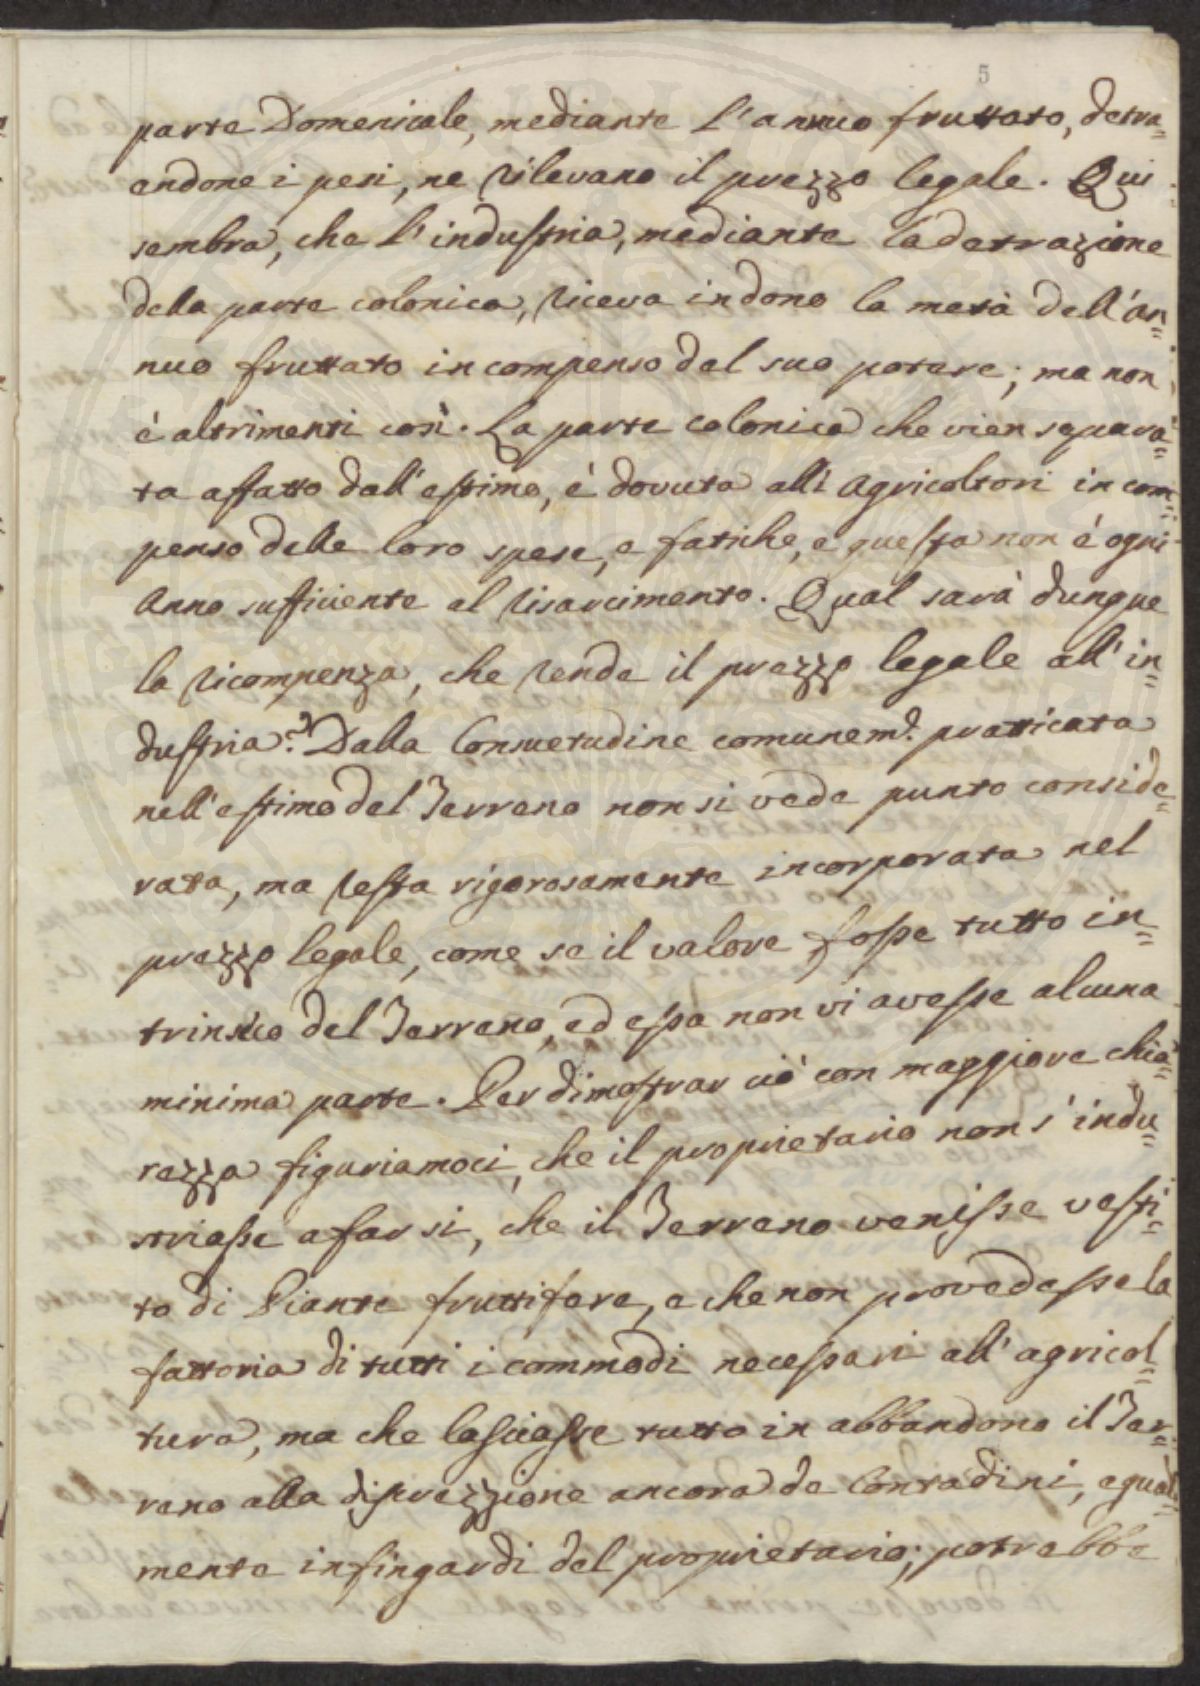 5
parte Domenicale, mediante l'annuo fruttato, detra=
endone i pesi, ne rilevano il prezzo legale. Qui
sembra, che l'industria, mediante la detrazione
della parte colonica, riceva in dono la metà dell'an=
nuo fruttato in compenso del suo potere; ma non
è altrimenti così. La parte colonica che vien separa=
ta affatto dall'estimo, è dovuta alli Agricoltori in com=
penso delle loro spese, e fatiche, e questa non è ogni
Anno sufficiente al risarcimento. Qual sarà dunque
la ricompenza, che rende il prezzo legale all'in=
dustria? Dalla Consuetudine comunem.e pratticata
nell'estimo del Terreno non si vede punto conside=
rata, ma resta rigorosamente incorporata nel
prezzo legale, come se il valore fosse tutto in=
trinsico del Terreno, ed essa non vi avesse alcuna
minima parte. Per dimostrar ciò con maggiore chia=
rezza figuriamoci, che il proprietario non s'indu=
striasse a far si, che il Terreno venisse vesti=
to di Piante fruttifere, e che non provedesse la
fattoria di tutti i commodi necessari all'agricol=
tura, ma che lasciasse tutto in abbandono il Ter=
reno alla discrezzione ancora de Contadini, egual=
mente infingardi del proprietario; potrebbe